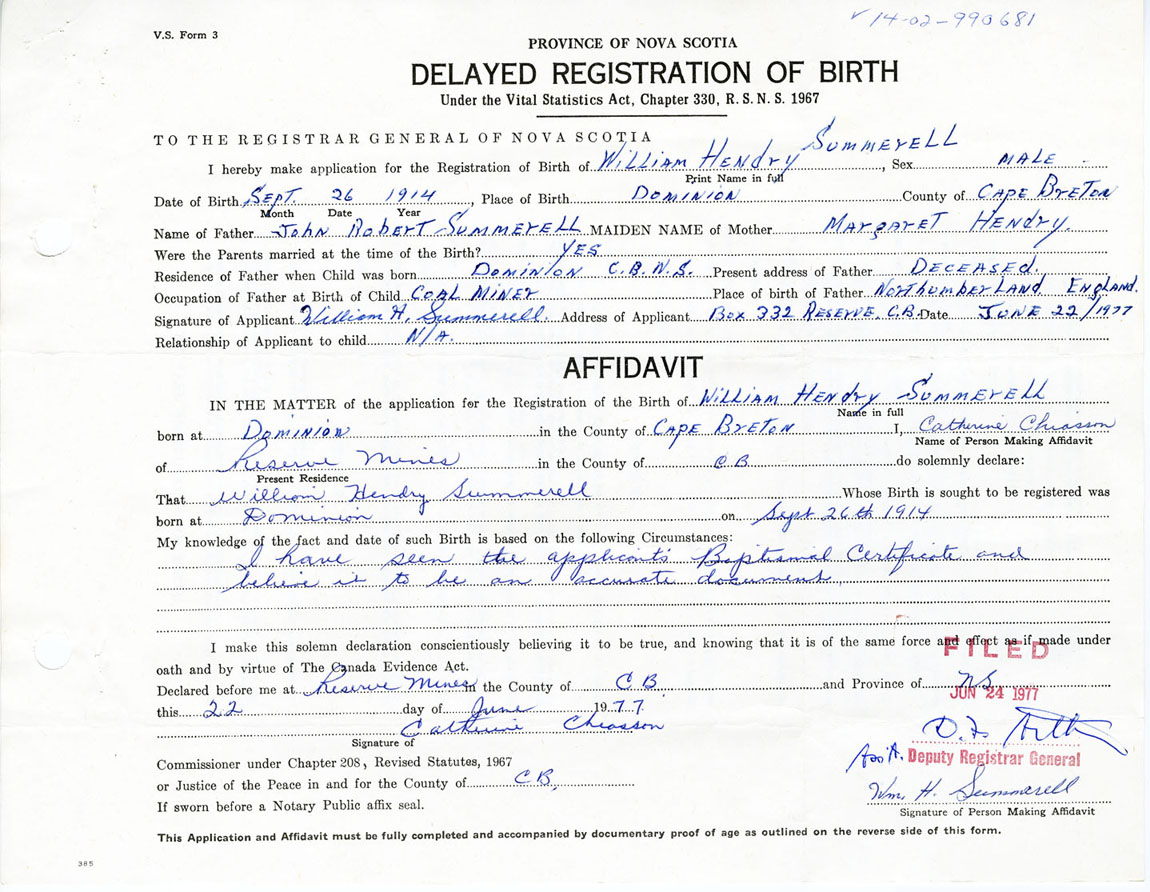 V.S. Form 3
14-02-990681
PROVINCE OF NOVA SCOTIA
DELAYED REGISTRATION OF BIRTH
Under the Vital Statistics Act, Chapter 330, R.S.N.S. 1967
TO THE REGISTRAR GENERAL OF NOVA SCOTIA
I hereby make application for the Registration of Birth of William Hendry Summerell, Sex Male
Print Name in full
Date of Birth Sept. 26 1914, Place of Birth Dominion County of Cape Breton
Month Date Year
Name of Father John Robert Summerell MAIDEN NAME of Mother Margaret Hendry.
Were the Parents married at the time of the Birth? Yes
Residence of Father when Child was born Dominion C.B.N.S. Present address of Father Deceased.
Occupation of Father at Birth of Child Coal Miner Place of birth of Father Northumberland England.
Signature of Applicant William H. Summerell. Address of Applicant Box 332 Reserve, C.B. Date June 22/1977
Relationship of Applicant to child N/A.
AFFIDAVIT
IN THE MATTER of the application for the Registration of the Birth of William Hendry Summerell
Name in full
born at Dominion in the County of Cape Breton I, Catherine Chiasson
Name of Person Making Affidavit
of Reserve Mines in the County of C B do solemnly declare:
Present Residence
That William Hendry Summerell Whose Birth is sought to be registered was
born at Dominion on Sept 26th 1914
My knowledge of the fact and date of such Birth is based on the following Circumstances:
I have seen the applicant's Baptismal Certificate and
believe it to be an accurate document.
I make this solemn declaration conscientiously believing it to be true, and knowing that it is of the same force and effect as if made under
FILED
oath and by virtue of The Canada Evidence Act.
Declared before me at Reserve Mines in the County of C B. and Province of N.S.
JUN 24 1977
this 22 day of June 1977
Catherine Chiasson
Signature of
Ass't. Deputy Registrar General
Commissioner under Chapter 208, Revised Statutes, 1967
or Justice of the Peace in and for the County of C B.
Wm. H. Summerell
If sworn before a Notary Public affix seal.
Signature of Person Making Affidavit
This Application and Affidavit must be fully completed and accompanied by documentary proof of age as outlined on the reverse side of this form.
385